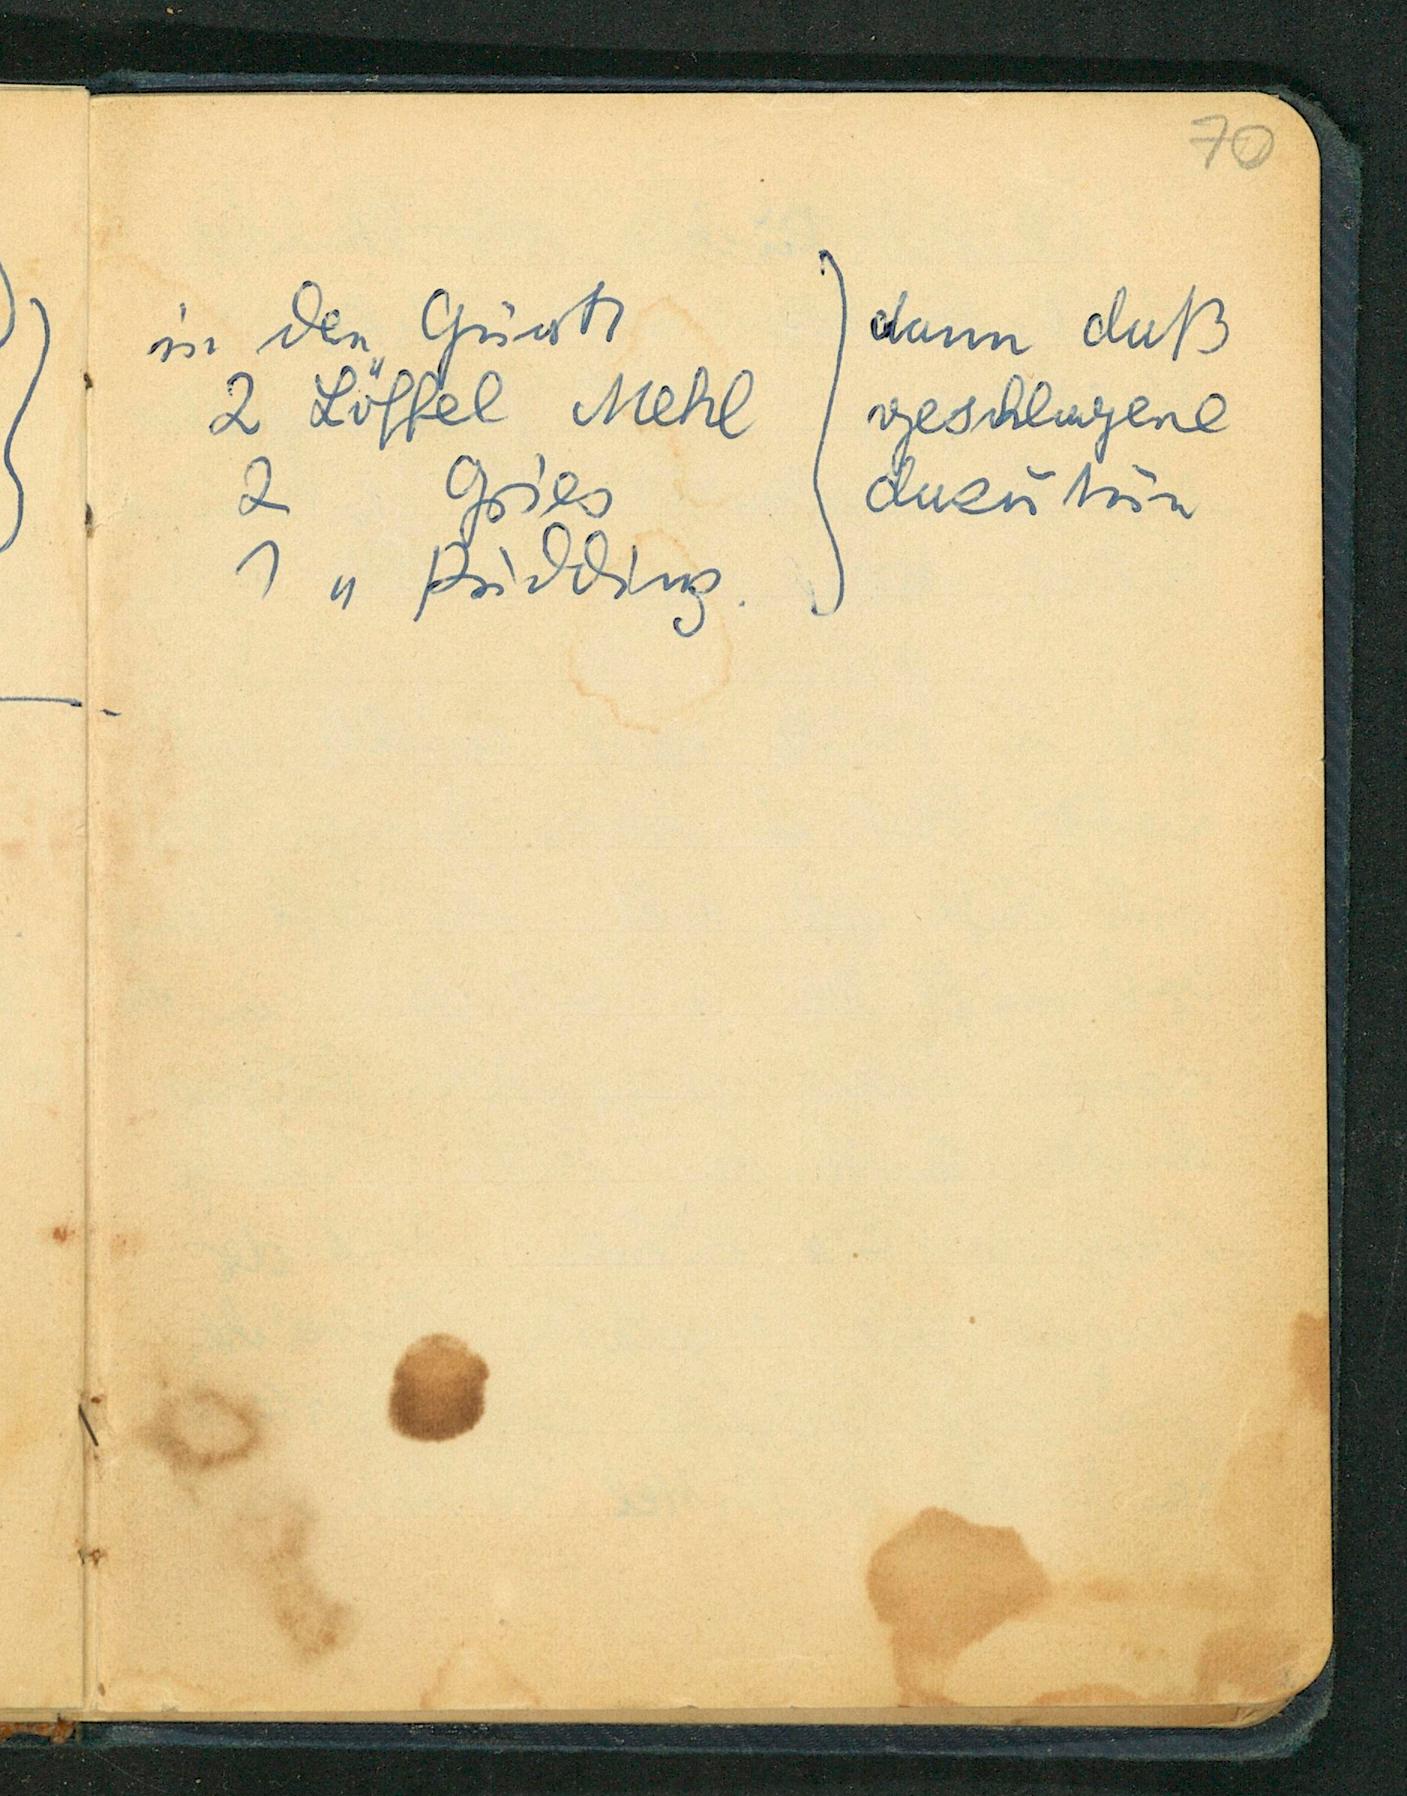 70
in den Quark
2 Löffel Mehl
2 " Gries
1 " Pudding.
dann daß
geschlagene
dazutun